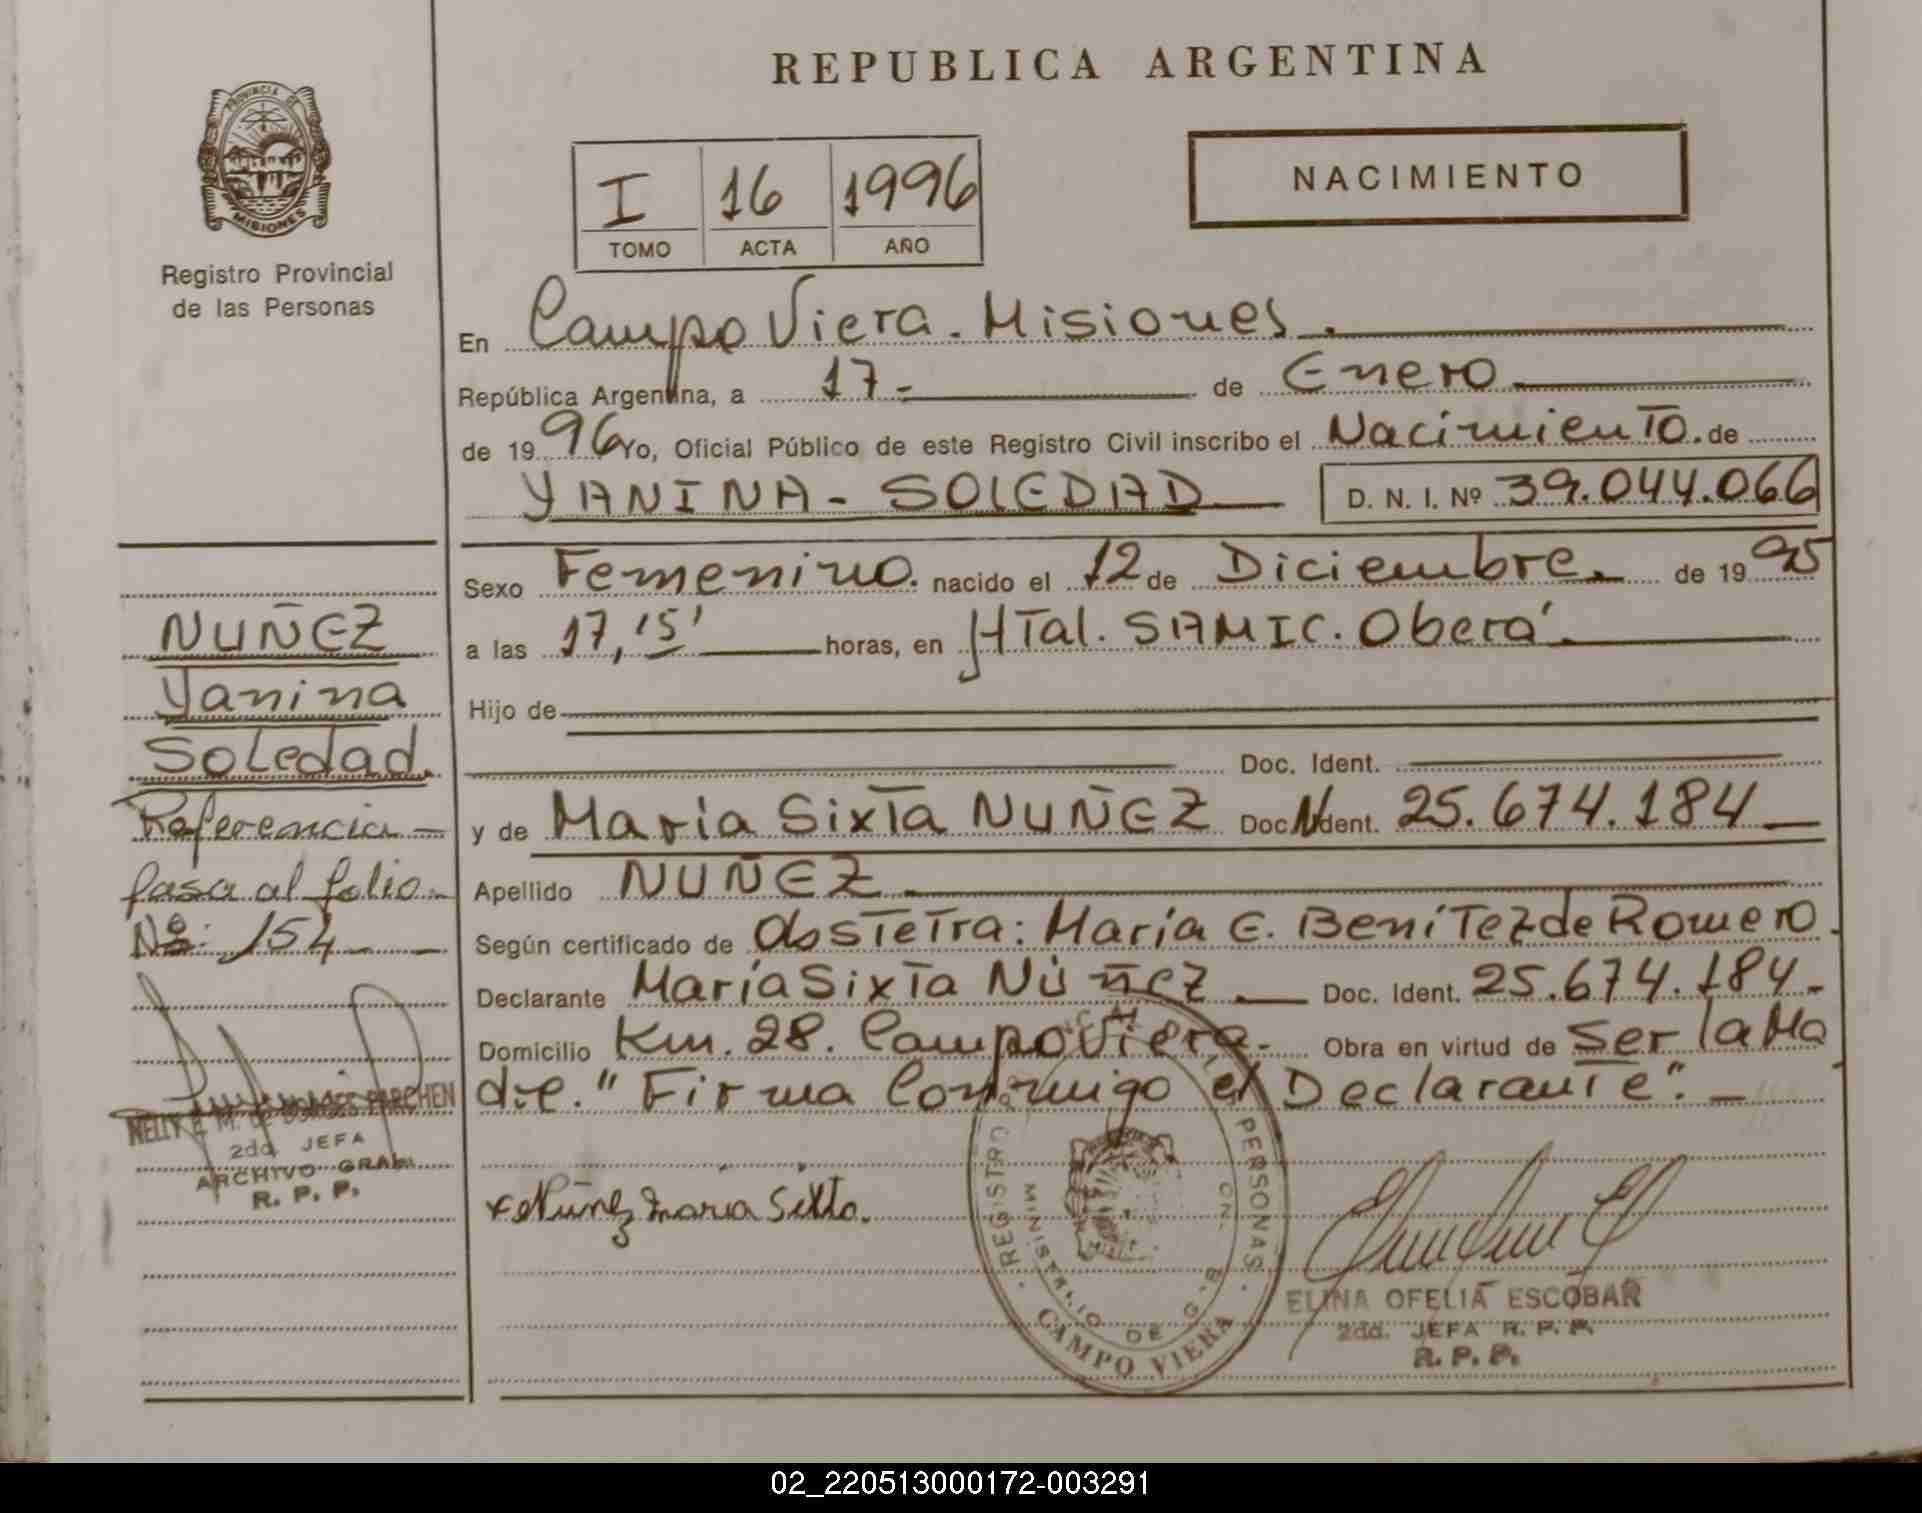 REPUBLICA ARGENTINA
PROVINCIA DE
MISIONES
Registro Provincial
de las Personas
I 16 1996
TOMO ACTA AÑO
NACIMIENTO
En Campo Viera. Misiones.
República Argentina, a 17- de Enero
de 1996 Yo, Oficial Público de este Registro Civil inscribo el Nacimiento. de
YANINA - SOLEDAD D. N. I. Nº 39.044.066
Sexo Femenino. nacido el 12 de Diciembre. de 1995
a las 17,15' horas, en HTal. SAMIC. Oberá.
Hijo de
Doc. Ident.
y de María Sixta NUÑEZ Doc. Ident. 25.674.184
Apellido NUÑEZ
Según certificado de ObsTeTra: María E. BeníTez de Romero.
Declarante María Sixta Núñez Doc. Ident. 25.674.184.-
Domicilio Km. 28. Campo Viera.- Obra en virtud de Ser la Ma
dre. "Firma Conmigo el Declarante".-
NUÑEZ
Yanina
Soledad.
Referencia -
pasa al folio -
Nº: 154 -
2da. JEFA
ARCHIVO GRAL.
R. P. P.
x Núñez maria Sixta.
REGISTRO PERSONAS
MINISTERIO DE G.
CAMPO VIERA
ELINA OFELIA ESCOBAR
2da. JEFA R. P. P.
R. P. P.
02_220513000172-003291